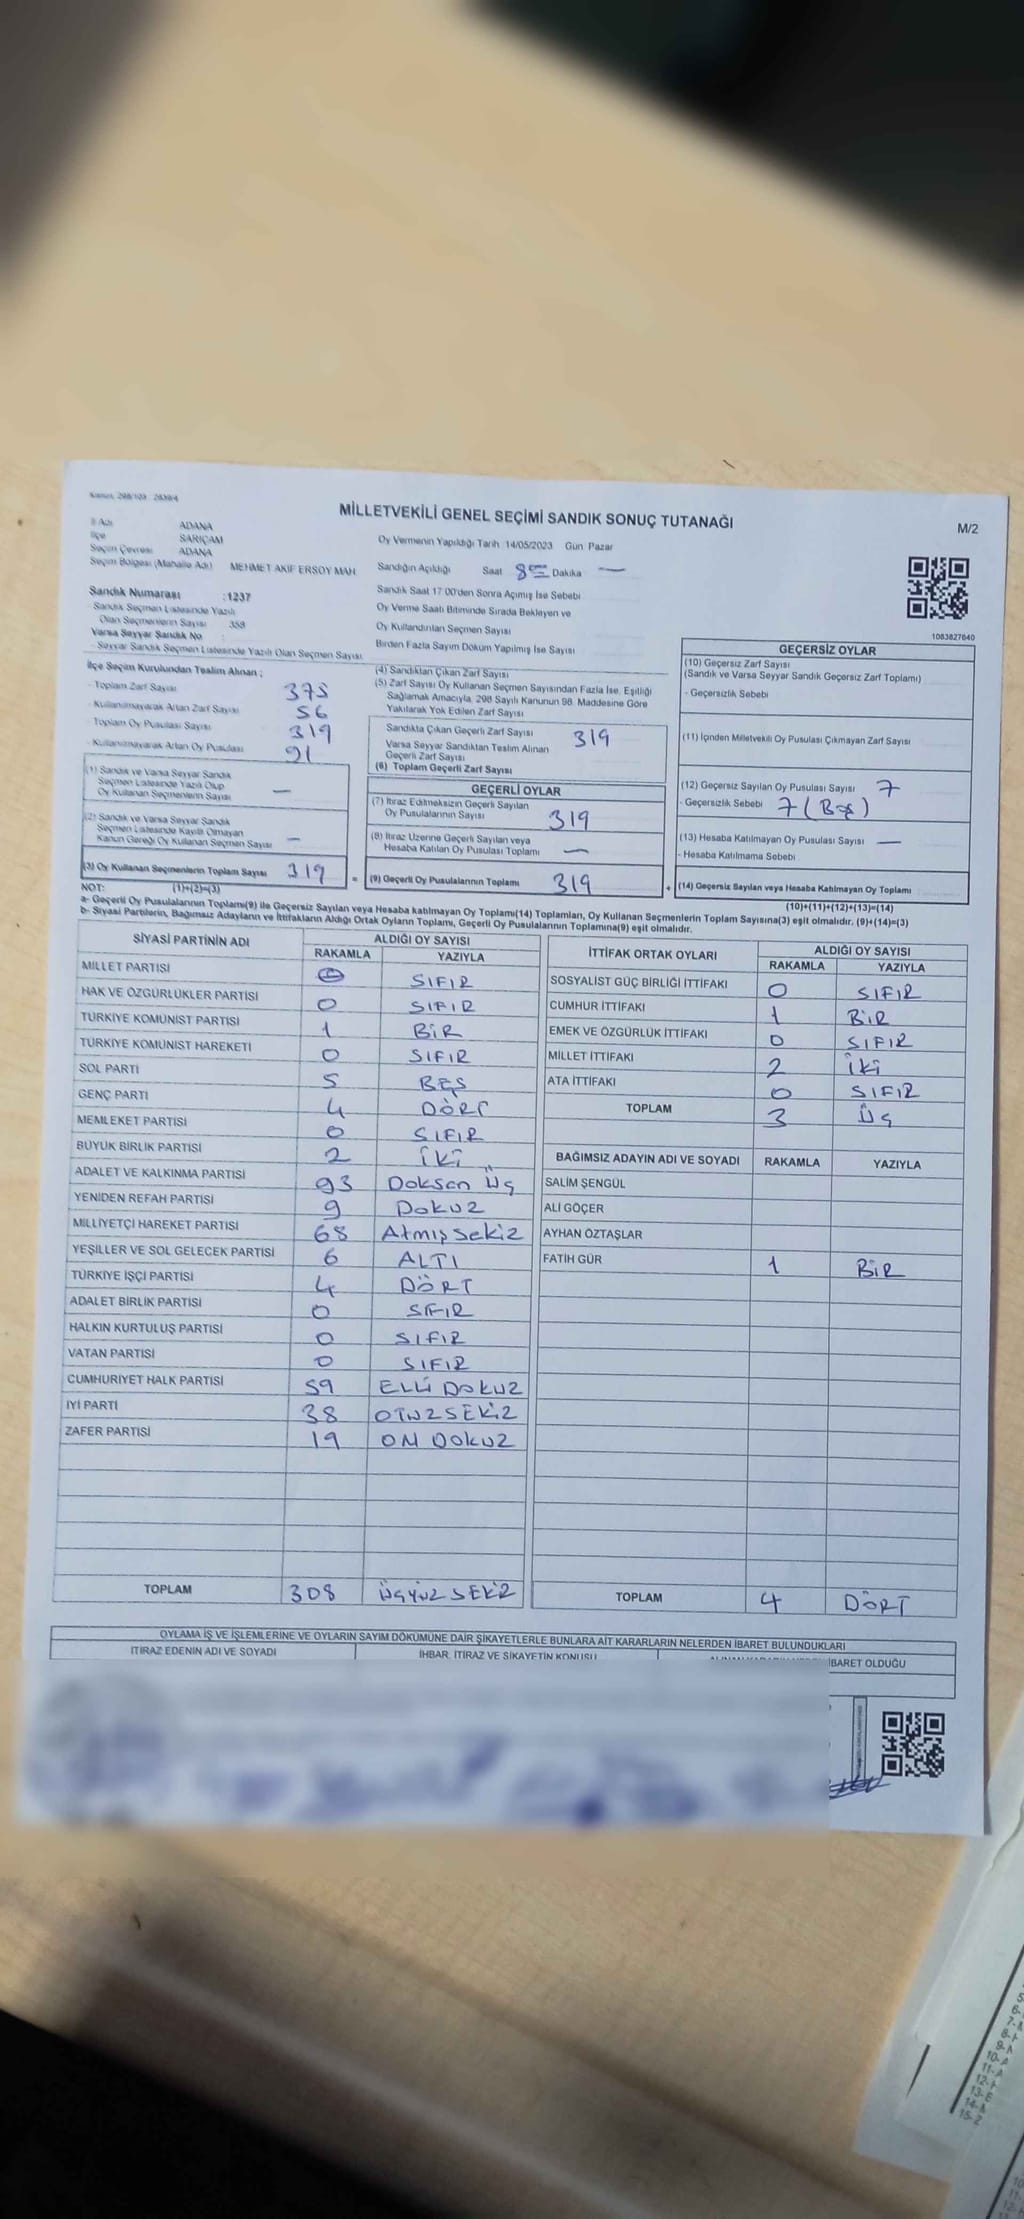 Kanun, 298/103 - 2839/4
MİLLETVEKİLİ GENEL SEÇİMİ SANDIK SONUÇ TUTANAĞI
M/2
İl Adı ADANA
İlçe SARIÇAM
Seçim Çevresi ADANA
Seçim Bölgesi (Mahalle Adı) MEHMET AKİF ERSOY MAH
Sandık Numarası :1237
- Sandık Seçmen Listesinde Yazılı
Olan Seçmenlerin Sayısı 358
Varsa Seyyar Sandık No
- Seyyar Sandık Seçmen Listesinde Yazılı Olan Seçmen Sayısı
Oy Vermenin Yapıldığı Tarih 14/05/2023 Gün Pazar
Sandığın Açıldığı Saat 8 Dakika —
Sandık Saat 17 00'den Sonra Açımış İse Sebebi
Oy Verme Saati Bitiminde Sırada Bekleyen ve
Oy Kullandırılan Seçmen Sayısı
Birden Fazla Sayım Döküm Yapılmış İse Sayısı
1083827640
İlçe Seçim Kurulundan Teslim Alınan ;
- Toplam Zarf Sayısı 375
- Kullanılmayarak Artan Zarf Sayısı 56
- Toplam Oy Pusulası Sayısı 319
- Kullanılmayarak Artan Oy Pusulası 91
(1) Sandık ve Varsa Seyyar Sandık
Seçmen Listesinde Yazılı Olup
Oy Kullanan Seçmenlerin Sayısı —
(2) Sandık ve Varsa Seyyar Sandık
Seçmen Listesinde Kayıtlı Olmayan
Kanun Gereği Oy Kullanan Seçmen Sayısı —
(3) Oy Kullanan Seçmenlerin Toplam Sayısı 319
(4) Sandıktan Çıkan Zarf Sayısı
(5) Zarf Sayısı Oy Kullanan Seçmen Sayısından Fazla İse, Eşitliği
Sağlamak Amacıyla, 298 Sayılı Kanunun 98. Maddesine Göre
Yakılarak Yok Edilen Zarf Sayısı
Sandıkta Çıkan Geçerli Zarf Sayısı 319
Varsa Seyyar Sandıktan Teslim Alınan
Geçerli Zarf Sayısı
(6) Toplam Geçerli Zarf Sayısı
GEÇERLİ OYLAR
(7) İtiraz Edilmeksizin Geçerli Sayılan
Oy Pusulalarının Sayısı 319
(8) İtiraz Üzerine Geçerli Sayılan veya
Hesaba Katılan Oy Pusulası Toplamı —
= (9) Geçerli Oy Pusulalarının Toplamı 319 +
GEÇERSİZ OYLAR
(10) Geçersiz Zarf Sayısı
(Sandık ve Varsa Seyyar Sandık Geçersiz Zarf Toplamı)
- Geçersizlik Sebebi
(11) İçinden Milletvekili Oy Pusulası Çıkmayan Zarf Sayısı
(12) Geçersiz Sayılan Oy Pusulası Sayısı 7
- Geçersizlik Sebebi 7
(13) Hesaba Katılmayan Oy Pusulası Sayısı —
- Hesaba Katılmama Sebebi
(14) Geçersiz Sayılan veya Hesaba Katılmayan Oy Toplamı
NOT: (1)+(2)=(3) (10)+(11)+(12)+(13)=(14)
a- Geçerli Oy Pusulalarının Toplamı(9) ile Geçersiz Sayılan veya Hesaba katılmayan Oy Toplamı(14) Toplamları, Oy Kullanan Seçmenlerin Toplam Sayısına(3) eşit olmalıdır. (9)+(14)=(3)
b- Siyasi Partilerin, Bağımsız Adayların ve İttifakların Aldığı Ortak Oyların Toplamı, Geçerli Oy Pusulalarının Toplamına(9) eşit olmalıdır.
SİYASİ PARTİNİN ADI ALDIĞI OY SAYISI
RAKAMLA YAZIYLA
MİLLET PARTİSİ 0 SIFIR
HAK VE ÖZGÜRLÜKLER PARTİSİ 0 SIFIR
TÜRKİYE KOMÜNİST PARTİSİ 1 BİR
TÜRKİYE KOMÜNİST HAREKETİ 0 SIFIR
SOL PARTİ 5 BEŞ
GENÇ PARTİ 4 DÖRT
MEMLEKET PARTİSİ 0 SIFIR
BÜYÜK BİRLİK PARTİSİ 2 İKİ
ADALET VE KALKINMA PARTİSİ 93 Doksan Üç
YENİDEN REFAH PARTİSİ 9 DOKUZ
MİLLİYETÇİ HAREKET PARTİSİ 68 Atmışsekiz
YEŞİLLER VE SOL GELECEK PARTİSİ 6 ALTI
TÜRKİYE İŞÇİ PARTİSİ 4 DÖRT
ADALET BİRLİK PARTİSİ 0 SIFIR
HALKIN KURTULUŞ PARTİSİ 0 SIFIR
VATAN PARTİSİ 0 SIFIR
CUMHURİYET HALK PARTİSİ 59 ELLİ DOKUZ
İYİ PARTİ 38 OTUZSEKİZ
ZAFER PARTİSİ 19 ON DOKUZ
TOPLAM 308 ÜÇYÜZ SEKİZ
İTTİFAK ORTAK OYLARI ALDIĞI OY SAYISI
RAKAMLA YAZIYLA
SOSYALİST GÜÇ BİRLİĞİ İTTİFAKI 0 SIFIR
CUMHUR İTTİFAKI 1 BİR
EMEK VE ÖZGÜRLÜK İTTİFAKI 0 SIFIR
MİLLET İTTİFAKI 2 İKİ
ATA İTTİFAKI 0 SIFIR
TOPLAM 3 ÜÇ
BAĞIMSIZ ADAYIN ADI VE SOYADI RAKAMLA YAZIYLA
SALİM ŞENGÜL
ALİ GÖÇER
AYHAN ÖZTAŞLAR
FATİH GÜR 1 BİR
TOPLAM 4 DÖRT
OYLAMA İŞ VE İŞLEMLERİNE VE OYLARIN SAYIM DÖKÜMÜNE DAİR ŞİKAYETLERLE BUNLARA AİT KARARLARIN NELERDEN İBARET BULUNDUKLARI
İTİRAZ EDENİN ADI VE SOYADI
İHBAR, İTİRAZ VE ŞİKAYETİN KONUSU
İBARET OLDUĞU